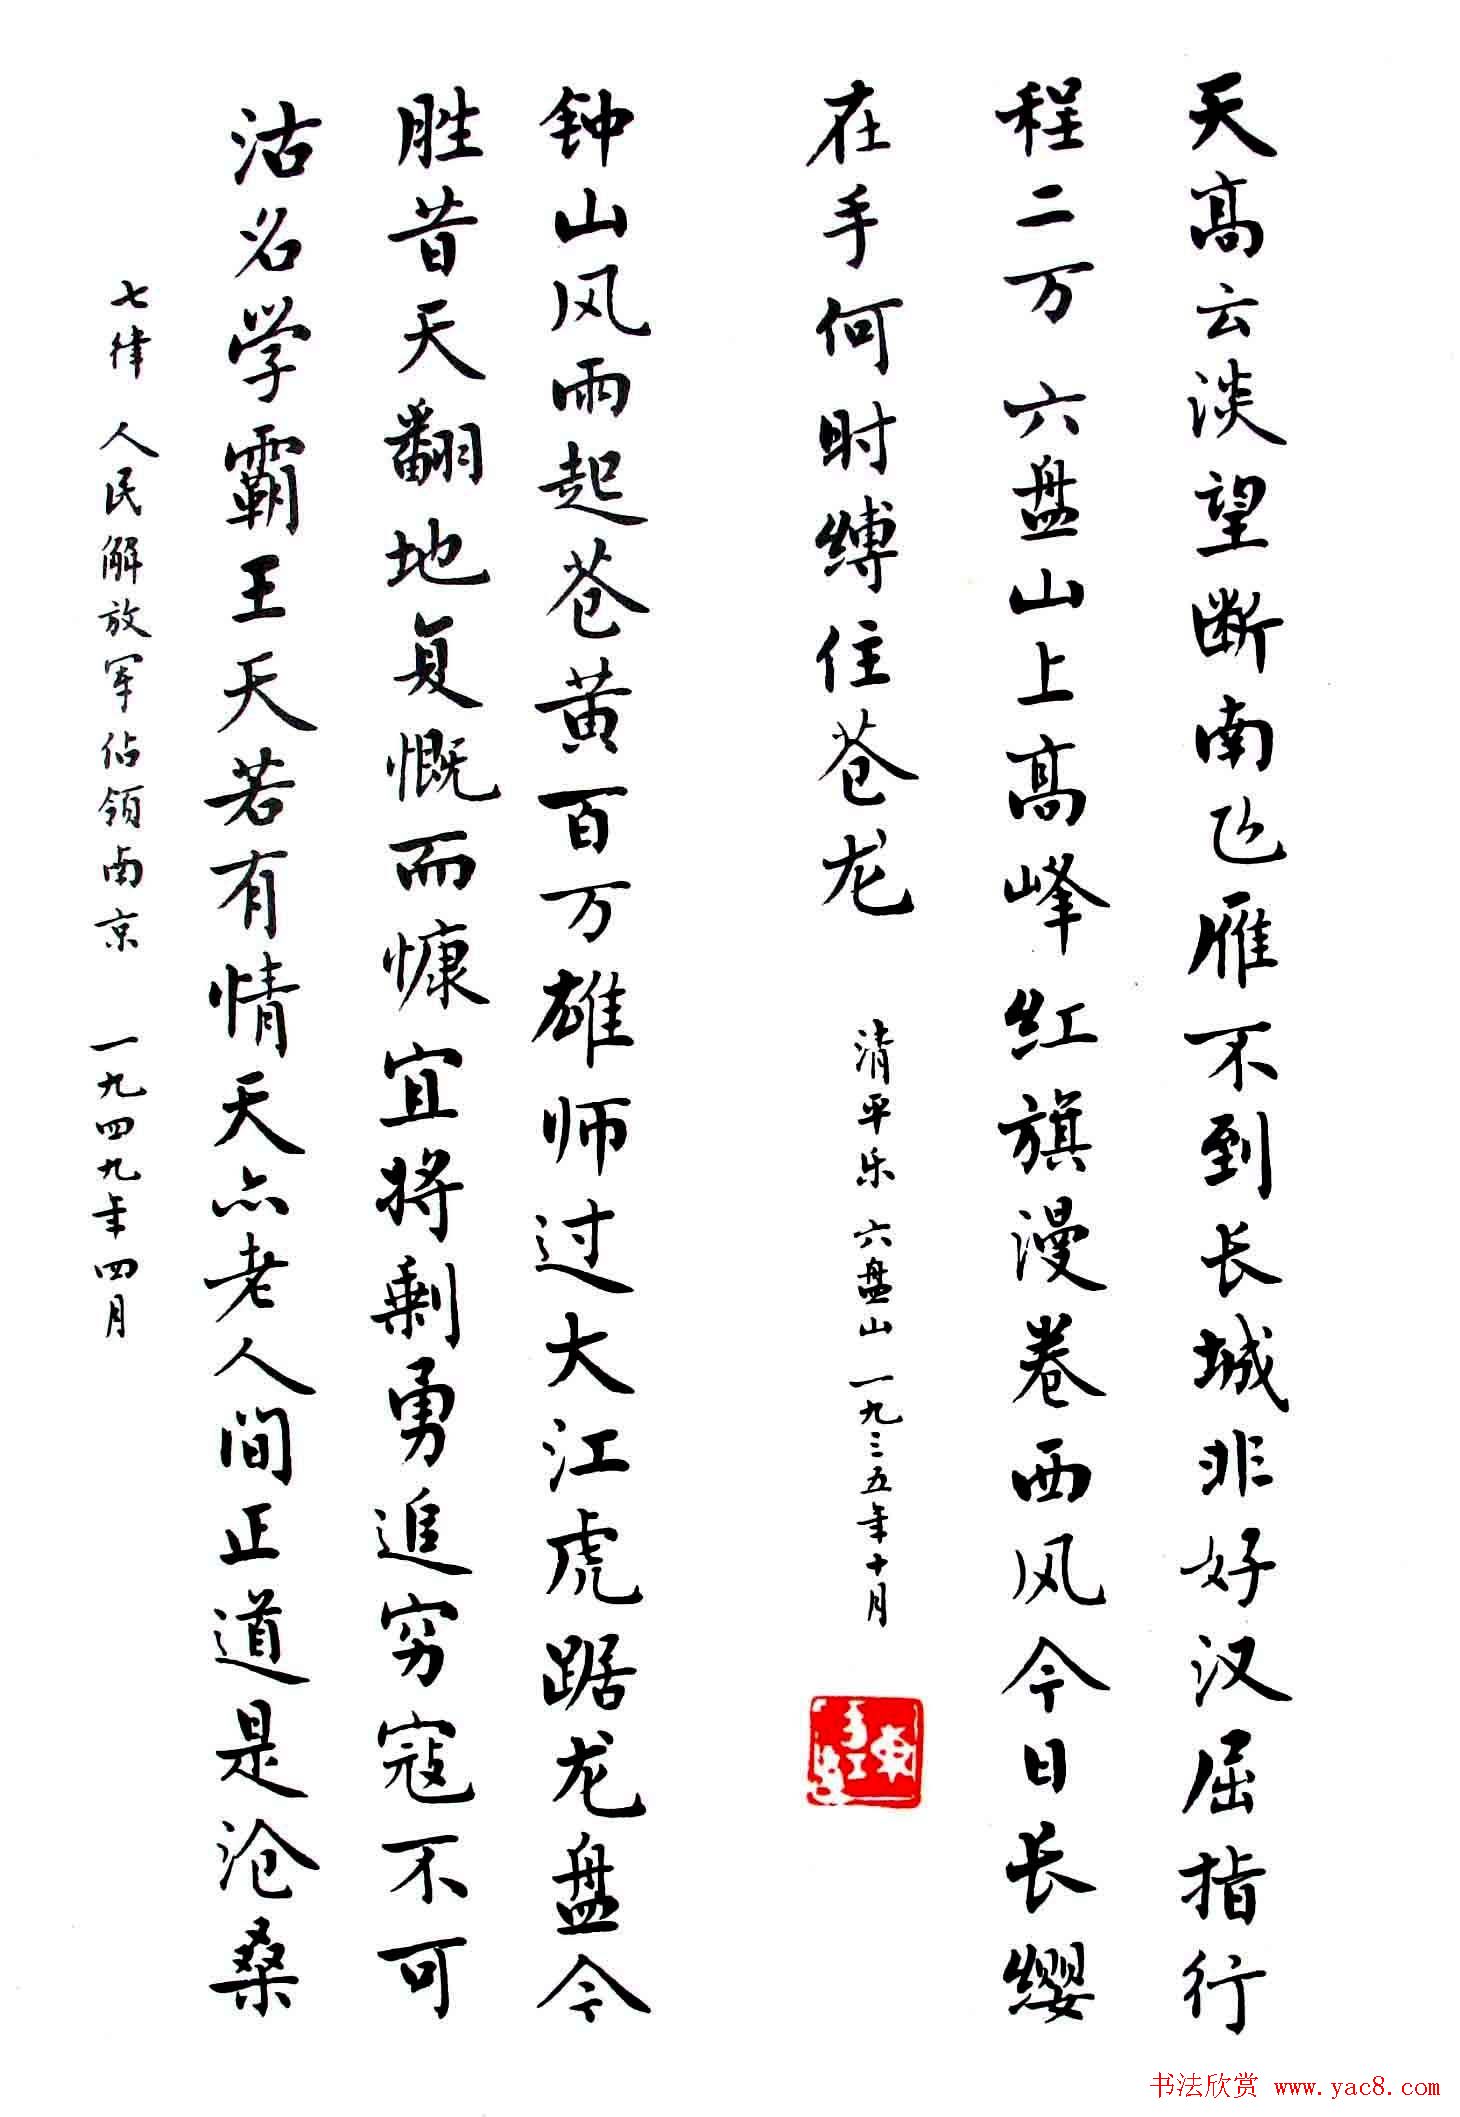 天高云淡望断南飞雁不到长城非好汉屈指行
程二万 六盘山上高峰红旗漫卷西风今日长缨
在手何时缚住苍龙
清平乐 六盘山 一九三五年十月
钟山风雨起苍黄百万雄师过大江虎踞龙盘今
胜昔天翻地复慨而慷宜将剩勇追穷寇不可
沽名学霸王天若有情天亦老人间正道是沧桑
七律 人民解放军占领南京 一九四九年四月
书法欣赏 www.yac8.com